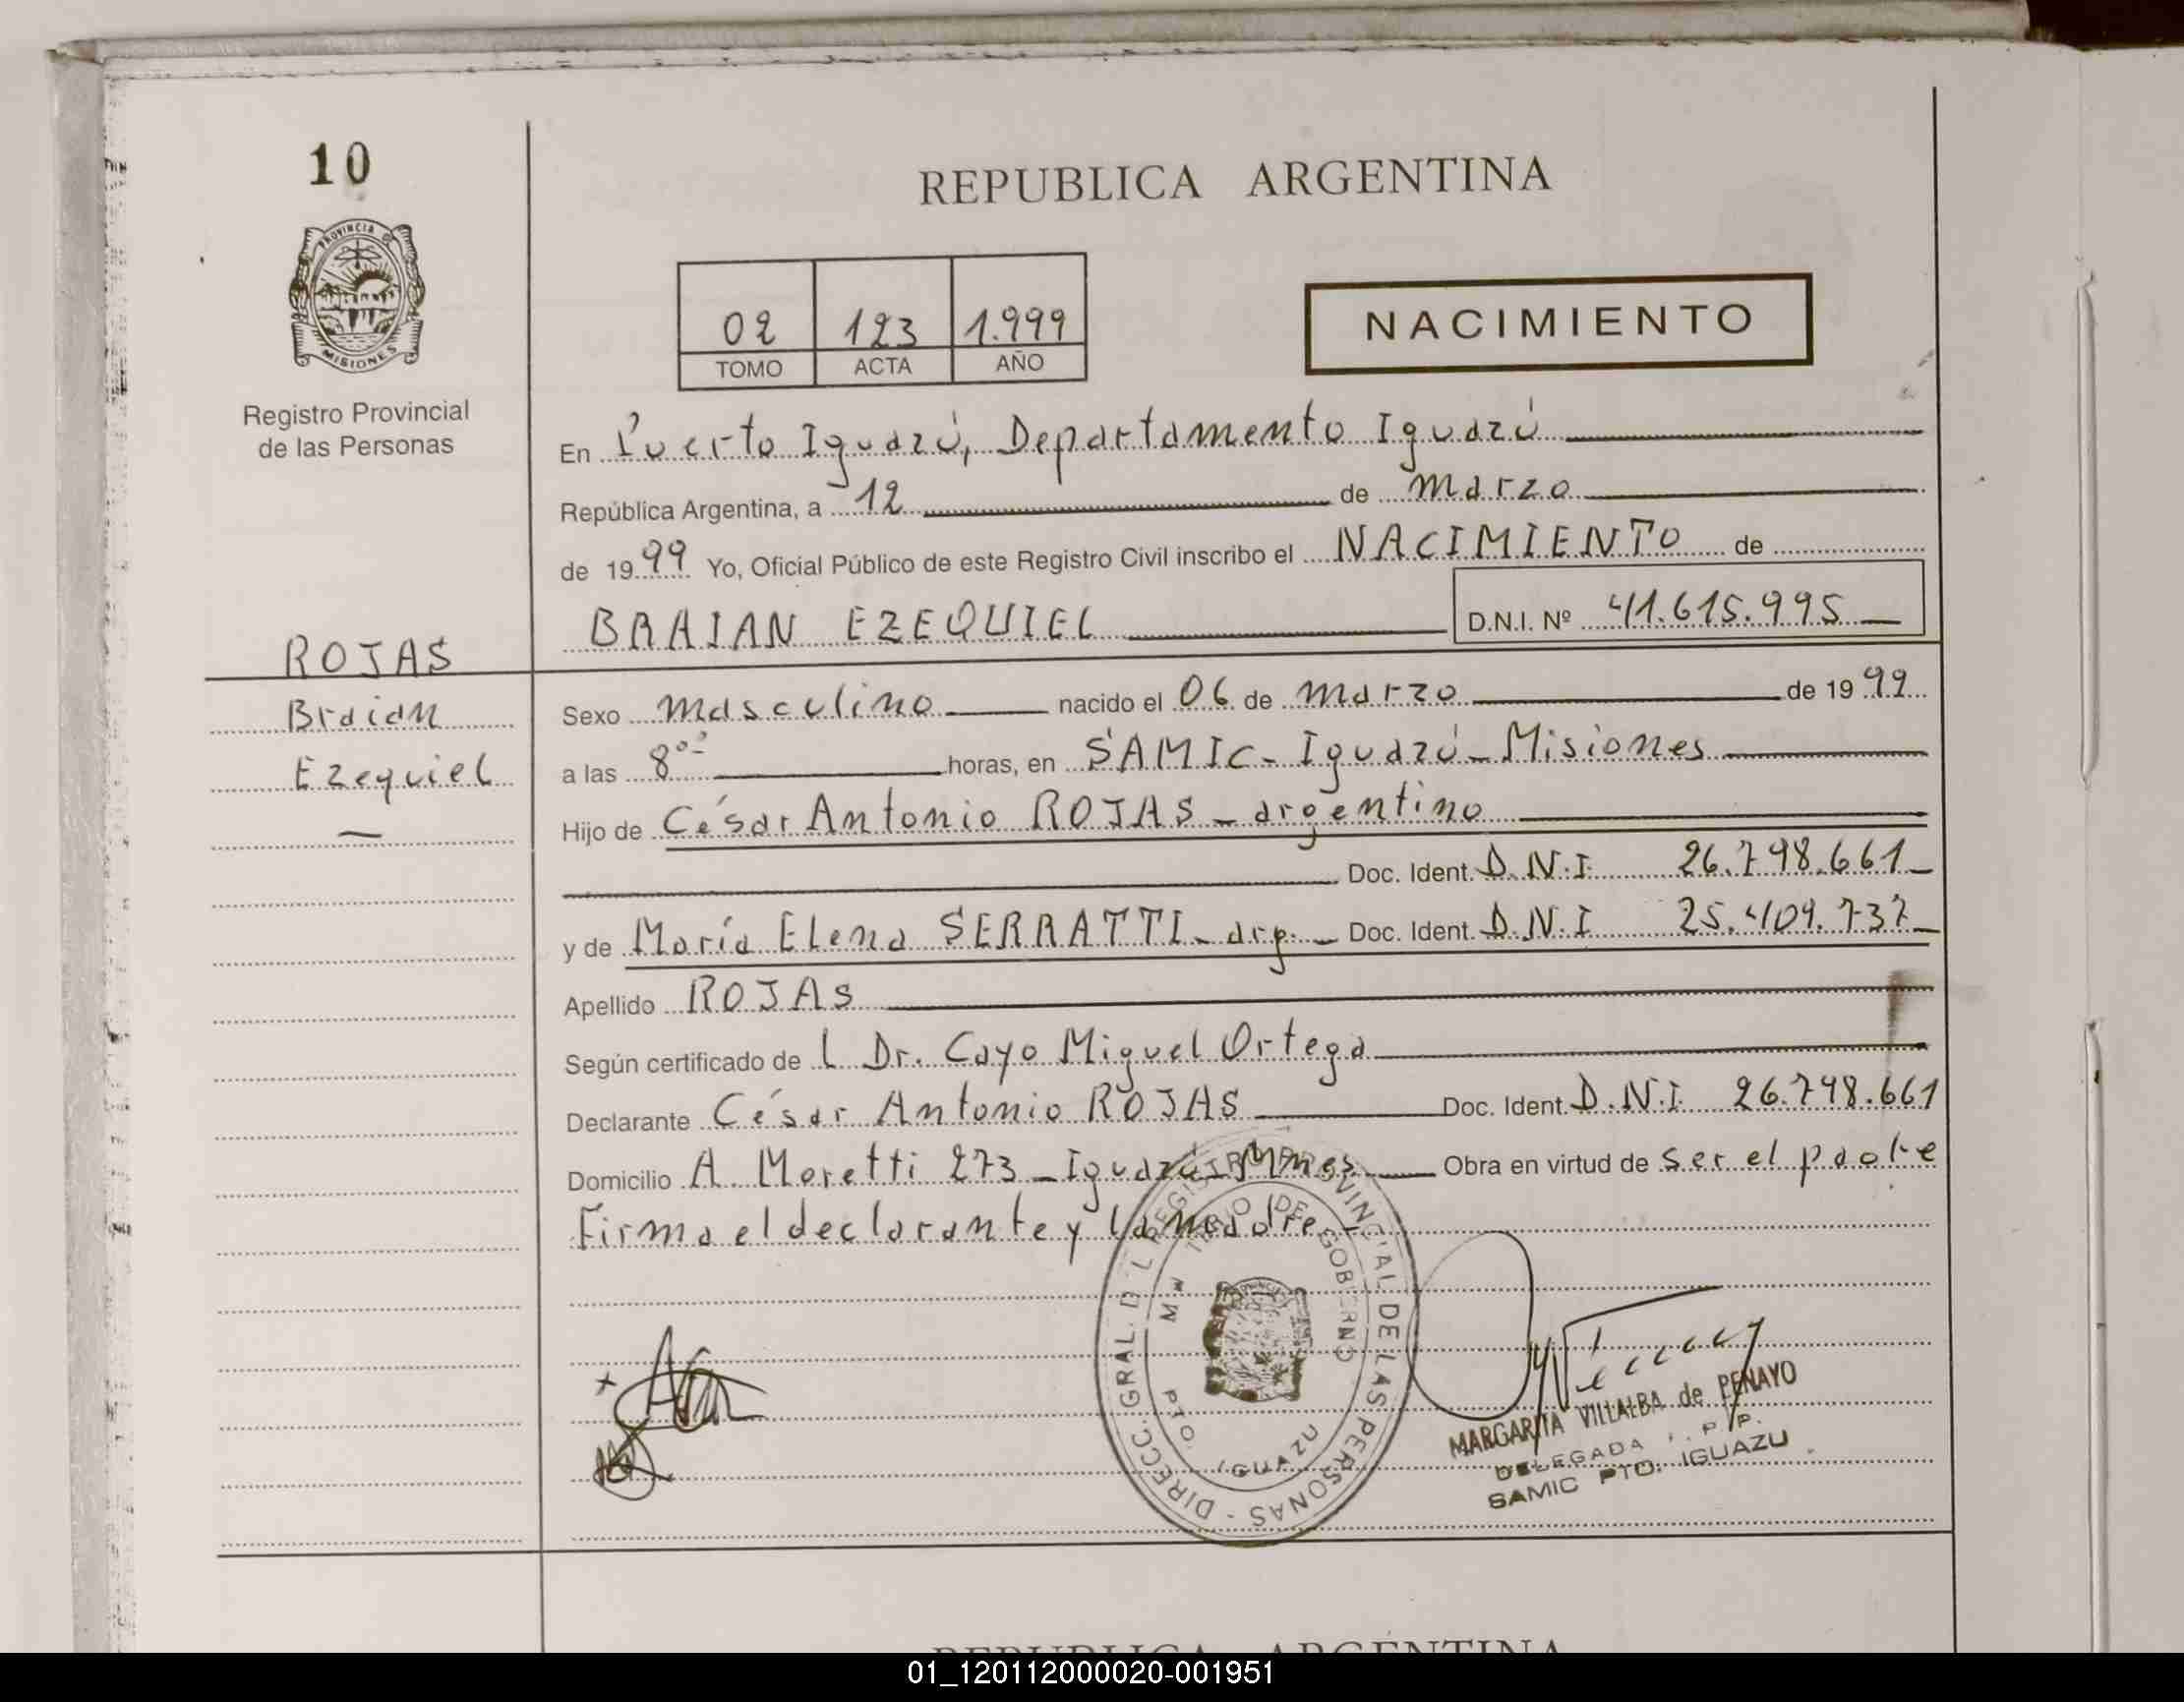 10
PROVINCIA
MISIONES
Registro Provincial
de las Personas
ROJAS
Braian
Ezequiel
REPUBLICA ARGENTINA
02 123 1.999
TOMO ACTA AÑO
NACIMIENTO
En Puerto Iguazú, Departamento Iguazú
República Argentina, a 12 de marzo
de 1999 Yo, Oficial Público de este Registro Civil inscribo el NACIMIENTO de
BRAIAN EZEQUIEL D.N.I. Nº 41.615.995
Sexo masculino nacido el 06 de marzo de 1999
a las 8ºº horas, en SAMIC - Iguazú - Misiones
Hijo de César Antonio ROJAS - argentino
Doc. Ident. D.N.I. 26.798.661
y de María Elena SERRATTI - arg. - Doc. Ident. D.N.I 25.409.737
Apellido ROJAS
Según certificado de l Dr. Cayo Miguel Ortega
Declarante César Antonio ROJAS Doc. Ident. D.N.I. 26.798.661
Domicilio A. Moretti 273 - Iguazú Mnes Obra en virtud de ser el padre
Firma el declarante y la madre
DIRECC. GRAL. DEL REGISTRO PROVINCIAL DE LAS PERSONAS -
DE GOBIERNO
PTO IGUAZU
MARGARITA VILLALBA de PENAYO
DELEGADA . . P. P.
SAMIC PTO. IGUAZU
REPUBLICA ARGENTINA
01_120112000020-001951